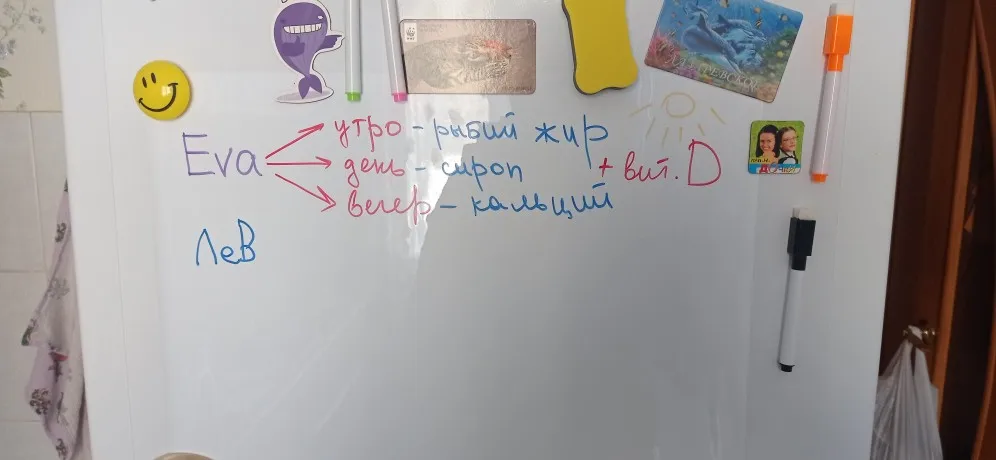 утро - рыбий жир
Eva день - сироп + вит. D
вечер - кальций
Лев